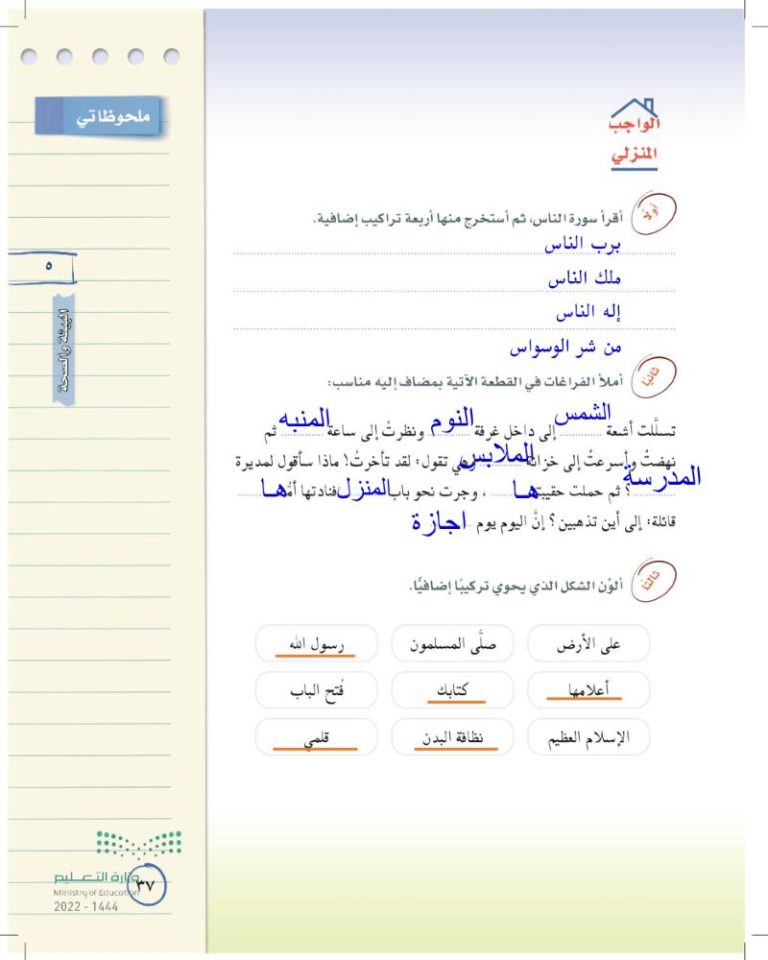 الواجب
المنزلي
أولًا أقرأ سورة الناس، ثم أستخرج منها أربعة تراكيب إضافية.
برب الناس
ملك الناس
إله الناس
من شر الوسواس
ثانيًا أملأ الفراغات في القطعة الآتية بمضاف إليه مناسب:
تسلَّلت أشعة الشمس إلى داخل غرفة النوم ونظرتُ إلى ساعة المنبه ثم
نهضتُ وأسرعتُ إلى خزانة الملابس وهي تقول: لقد تأخرتُ! ماذا سأقول لمديرة
المدرسة؟ ثم حملت حقيبتها، وجرت نحو باب المنزل فنادتها أمُّها
قائلة: إلى أين تذهبين؟ إنَّ اليوم يوم اجازة
ثالثًا ألوّن الشكل الذي يحوي تركيبًا إضافيًّا.
على الأرض صلَّى المسلمون رسول الله
أعلامها كتابك فُتح الباب
الإسلام العظيم نظافة البدن قلمي
ملحوظاتي
٥
البيئة والصحة
وزارة التعليم
Ministry of Education
2022 - 1444
٣٧